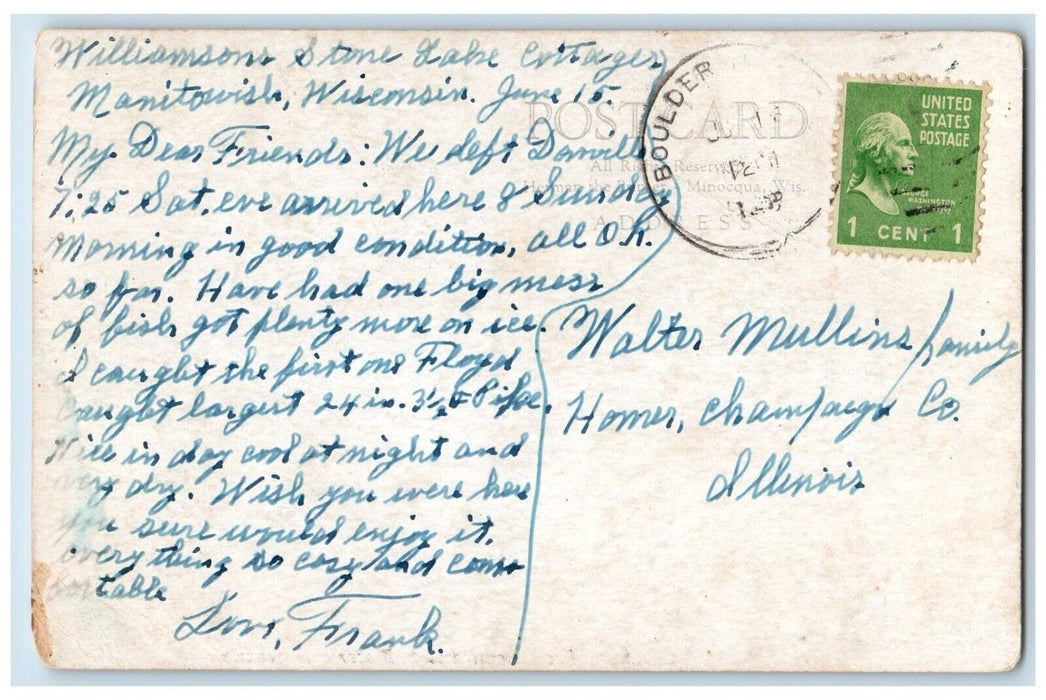 Williamsons Stone Lake Cottages
Manitowish, Wisconsin. June 15.
My Dear Friends: We left Danville
7:25 Sat. eve arrived here 8 Sunday
morning in good condition, all O.K.
so far. Have had one big mess
of fish got plenty more on ice.
I caught the first one Floyd
caught largest 24 in. 3½ # Pike.
Nice in day cool at night and
very dry. Wish you were here
you sure would enjoy it.
everything so cosy and com-
fortable
Love, Frank.
POST CARD
All Rights Reserved
Minocqua, Wis.
ADDRESS
BOULDER
UNITED
STATES
POSTAGE
GEORGE
WASHINGTON
1 CENT 1
Walter Mullins family
Homer, Champaign Co.
Illinois